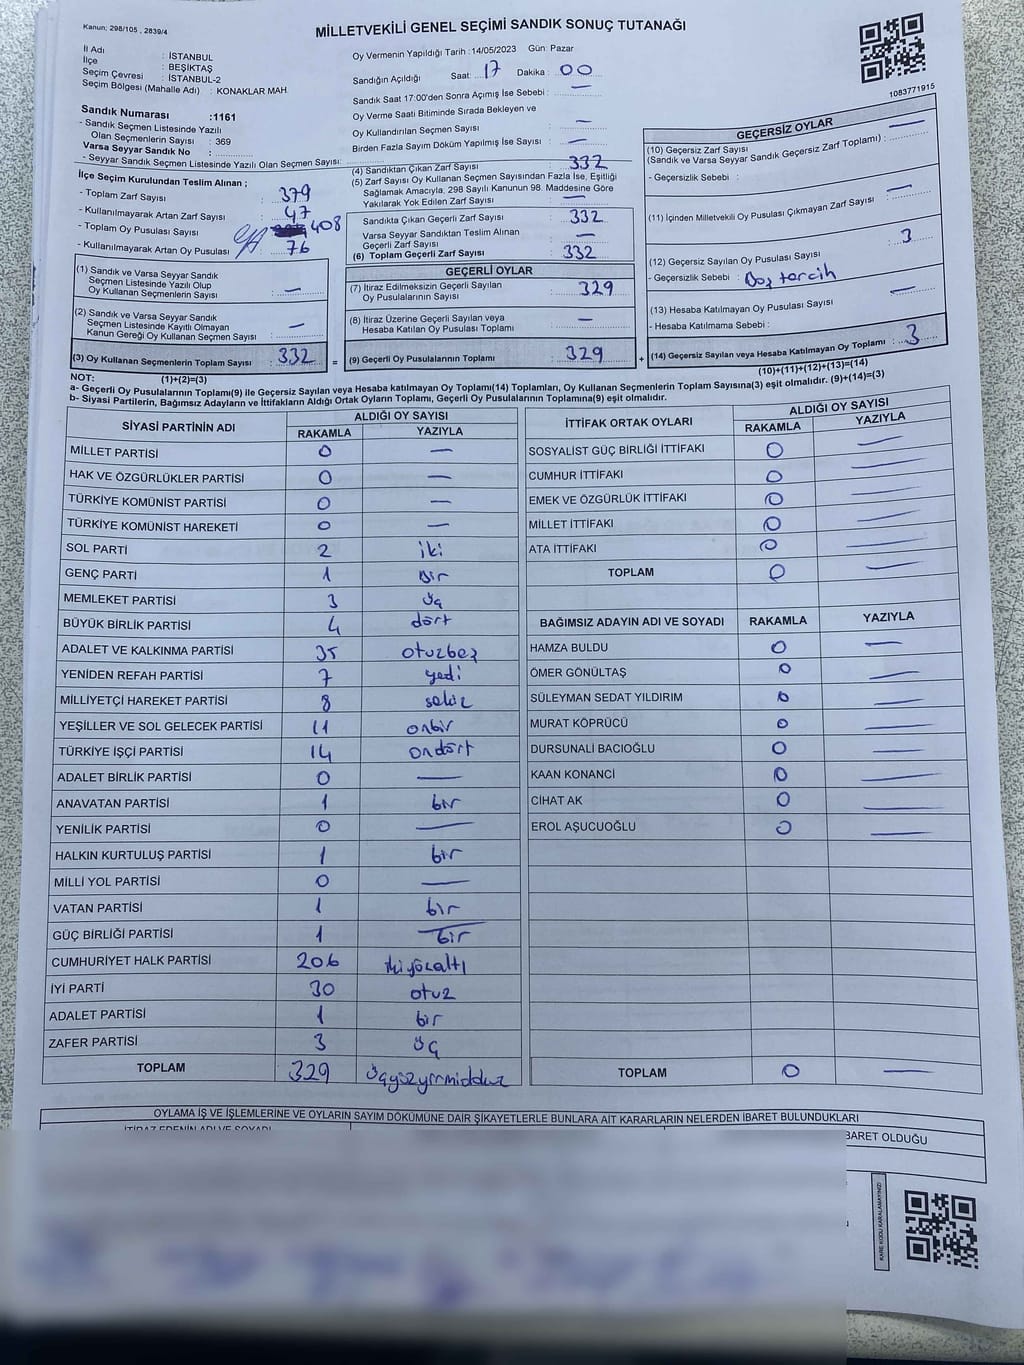 Kanun: 298/105 , 2839/4
MİLLETVEKİLİ GENEL SEÇİMİ SANDIK SONUÇ TUTANAĞI
İl Adı : İSTANBUL
İlçe : BEŞİKTAŞ
Seçim Çevresi : İSTANBUL-2
Seçim Bölgesi (Mahalle Adı) : KONAKLAR MAH.
Sandık Numarası :1161
- Sandık Seçmen Listesinde Yazılı
Olan Seçmenlerin Sayısı : 369
Varsa Seyyar Sandık No :
- Seyyar Sandık Seçmen Listesinde Yazılı Olan Seçmen Sayısı:
Oy Vermenin Yapıldığı Tarih :14/05/2023 Gün: Pazar
Sandığın Açıldığı Saat: 17 Dakika : 00
Sandık Saat 17:00'den Sonra Açımış İse Sebebi : —
Oy Verme Saati Bitiminde Sırada Bekleyen ve
Oy Kullandırılan Seçmen Sayısı —
Birden Fazla Sayım Döküm Yapılmış İse Sayısı : —
1083771915
İlçe Seçim Kurulundan Teslim Alınan ;
- Toplam Zarf Sayısı : 379
- Kullanılmayarak Artan Zarf Sayısı : 47
- Toplam Oy Pusulası Sayısı : 408
- Kullanılmayarak Artan Oy Pusulası : 76
(1) Sandık ve Varsa Seyyar Sandık
Seçmen Listesinde Yazılı Olup
Oy Kullanan Seçmenlerin Sayısı : —
(2) Sandık ve Varsa Seyyar Sandık
Seçmen Listesinde Kayıtlı Olmayan
Kanun Gereği Oy Kullanan Seçmen Sayısı : —
(3) Oy Kullanan Seçmenlerin Toplam Sayısı : 332 =
(1)+(2)=(3)
(4) Sandıktan Çıkan Zarf Sayısı : 332
(5) Zarf Sayısı Oy Kullanan Seçmen Sayısından Fazla İse, Eşitliği
Sağlamak Amacıyla, 298 Sayılı Kanunun 98. Maddesine Göre
Yakılarak Yok Edilen Zarf Sayısı : —
Sandıkta Çıkan Geçerli Zarf Sayısı : 332
Varsa Seyyar Sandıktan Teslim Alınan
Geçerli Zarf Sayısı : —
(6) Toplam Geçerli Zarf Sayısı : 332
GEÇERLİ OYLAR
(7) İtiraz Edilmeksizin Geçerli Sayılan
Oy Pusulalarının Sayısı : 329
(8) İtiraz Üzerine Geçerli Sayılan veya
Hesaba Katılan Oy Pusulası Toplamı : —
(9) Geçerli Oy Pusulalarının Toplamı : 329 +
GEÇERSİZ OYLAR
(10) Geçersiz Zarf Sayısı
(Sandık ve Varsa Seyyar Sandık Geçersiz Zarf Toplamı) : —
- Geçersizlik Sebebi :
(11) İçinden Milletvekili Oy Pusulası Çıkmayan Zarf Sayısı : —
(12) Geçersiz Sayılan Oy Pusulası Sayısı : 3
- Geçersizlik Sebebi : Boş tercih
(13) Hesaba Katılmayan Oy Pusulası Sayısı : —
- Hesaba Katılmama Sebebi :
(14) Geçersiz Sayılan veya Hesaba Katılmayan Oy Toplamı : 3
(10)+(11)+(12)+(13)=(14)
NOT:
a- Geçerli Oy Pusulalarının Toplamı(9) ile Geçersiz Sayılan veya Hesaba katılmayan Oy Toplamı(14) Toplamları, Oy Kullanan Seçmenlerin Toplam Sayısına(3) eşit olmalıdır. (9)+(14)=(3)
b- Siyasi Partilerin, Bağımsız Adayların ve İttifakların Aldığı Ortak Oyların Toplamı, Geçerli Oy Pusulalarının Toplamına(9) eşit olmalıdır.
SİYASİ PARTİNİN ADI ALDIĞI OY SAYISI
RAKAMLA YAZIYLA
MİLLET PARTİSİ 0 —
HAK VE ÖZGÜRLÜKLER PARTİSİ 0 —
TÜRKİYE KOMÜNİST PARTİSİ 0 —
TÜRKİYE KOMÜNİST HAREKETİ 0 —
SOL PARTİ 2 iki
GENÇ PARTİ 1 bir
MEMLEKET PARTİSİ 3 üç
BÜYÜK BİRLİK PARTİSİ 4 dört
ADALET VE KALKINMA PARTİSİ 35 otuzbeş
YENİDEN REFAH PARTİSİ 7 yedi
MİLLİYETÇİ HAREKET PARTİSİ 8 sekiz
YEŞİLLER VE SOL GELECEK PARTİSİ 11 onbir
TÜRKİYE İŞÇİ PARTİSİ 14 ondört
ADALET BİRLİK PARTİSİ 0 —
ANAVATAN PARTİSİ 1 bir
YENİLİK PARTİSİ 0 —
HALKIN KURTULUŞ PARTİSİ 1 bir
MİLLİ YOL PARTİSİ 0 —
VATAN PARTİSİ 1 bir
GÜÇ BİRLİĞİ PARTİSİ 1 bir
CUMHURİYET HALK PARTİSİ 206 ikiyüzaltı
İYİ PARTİ 30 otuz
ADALET PARTİSİ 1 bir
ZAFER PARTİSİ 3 üç
TOPLAM 329 üçyüzyirmidokuz
İTTİFAK ORTAK OYLARI ALDIĞI OY SAYISI
RAKAMLA YAZIYLA
SOSYALİST GÜÇ BİRLİĞİ İTTİFAKI 0 —
CUMHUR İTTİFAKI 0 —
EMEK VE ÖZGÜRLÜK İTTİFAKI 0 —
MİLLET İTTİFAKI 0 —
ATA İTTİFAKI 0 —
TOPLAM 0 —
BAĞIMSIZ ADAYIN ADI VE SOYADI RAKAMLA YAZIYLA
HAMZA BULDU 0 —
ÖMER GÖNÜLTAŞ 0 —
SÜLEYMAN SEDAT YILDIRIM 0 —
MURAT KÖPRÜCÜ 0 —
DURSUNALİ BACIOĞLU 0 —
KAAN KONANCİ 0 —
CİHAT AK 0 —
EROL AŞUCUOĞLU 0 —
TOPLAM 0 —
OYLAMA İŞ VE İŞLEMLERİNE VE OYLARIN SAYIM DÖKÜMÜNE DAİR ŞİKAYETLERLE BUNLARA AİT KARARLARIN NELERDEN İBARET BULUNDUKLARI
İTİRAZ EDENİN ADI VE SOYADI
İBARET OLDUĞU
KARE KODU KARALAMAYINIZ!